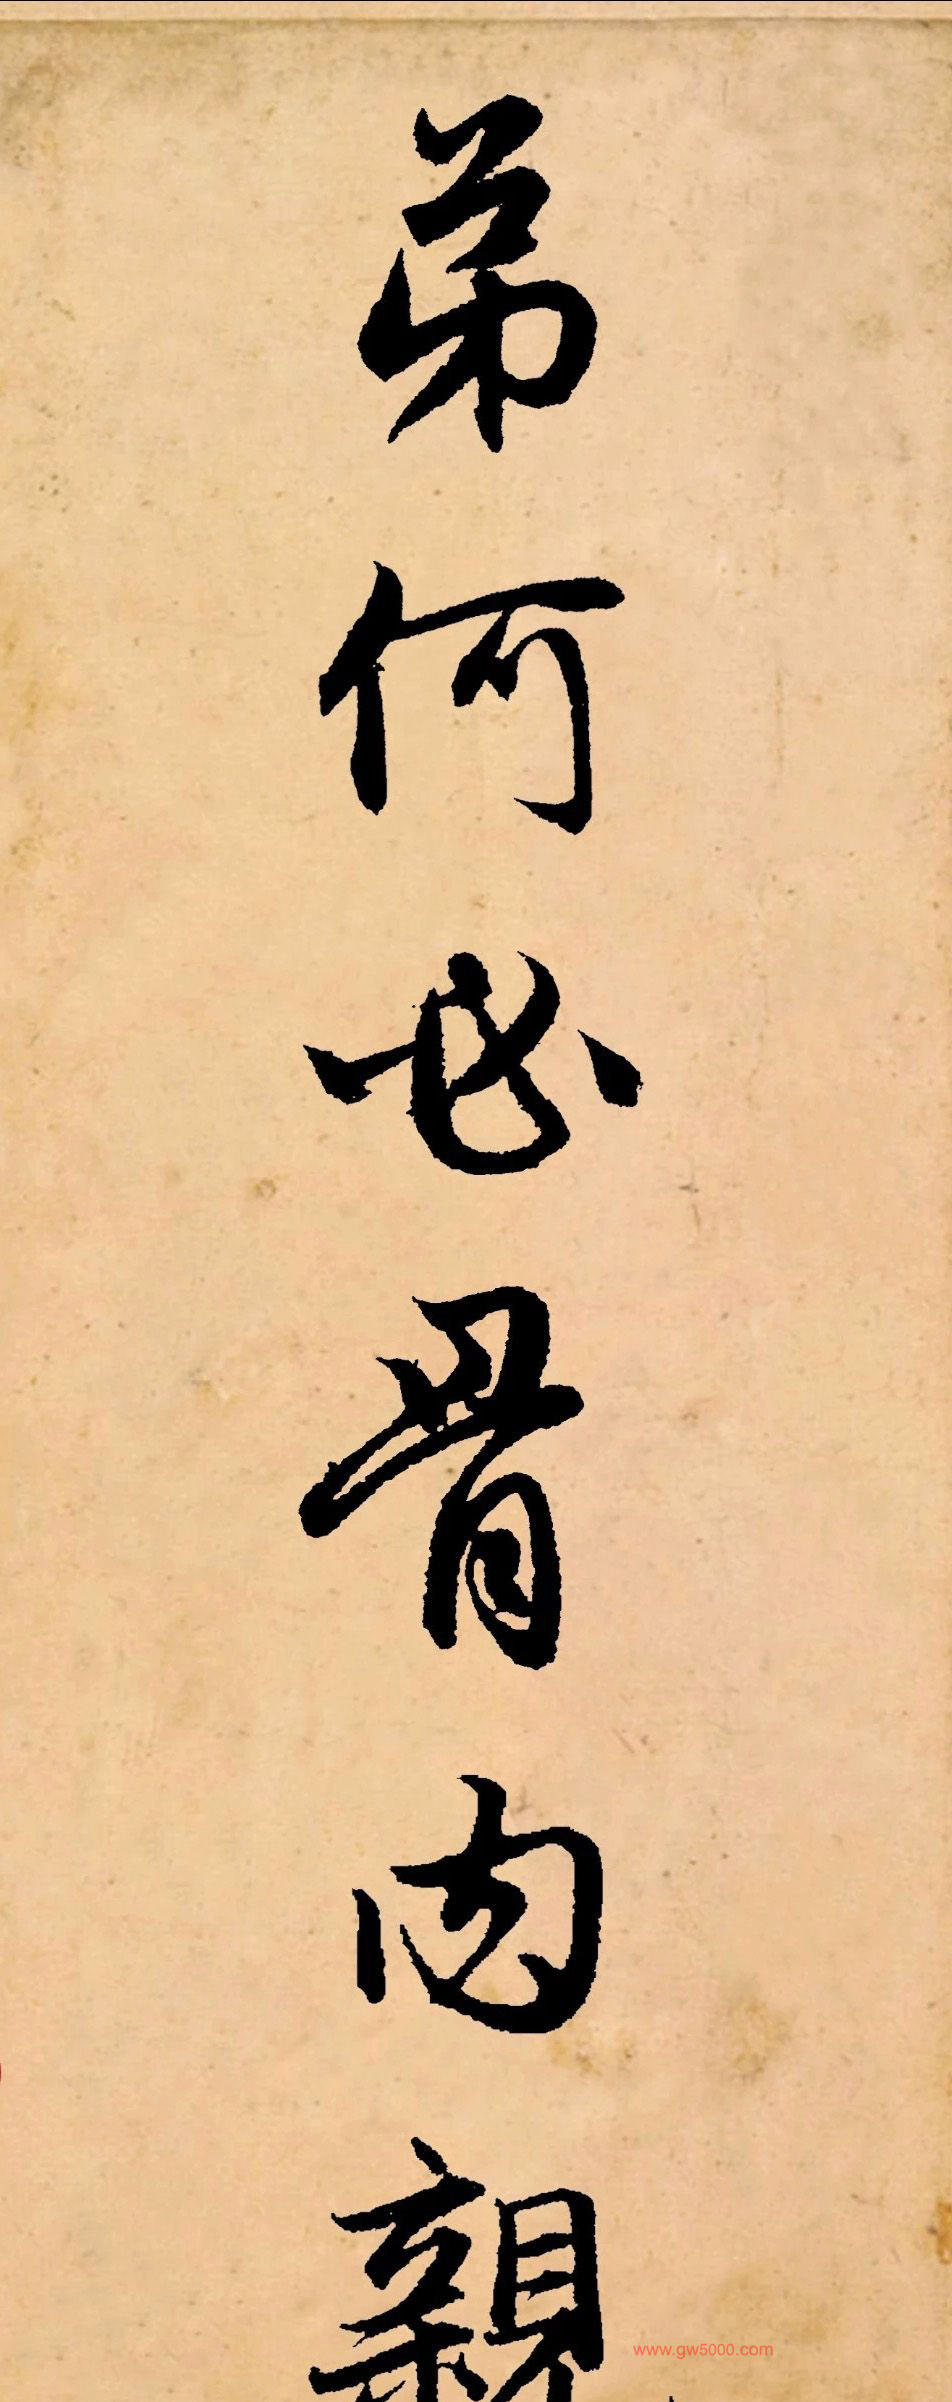 弟何必骨肉親
www.gw5000.com